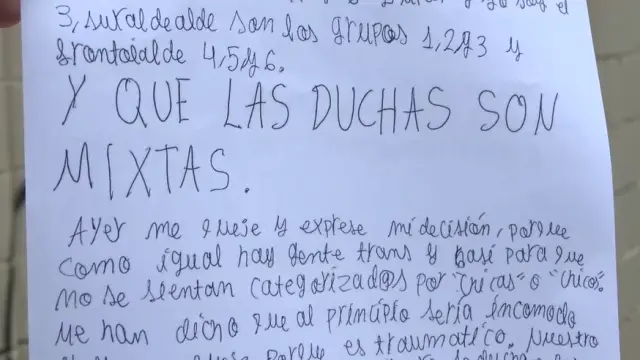 soy el
3, suraldealde son los grupos 1,2y3 y
frontoialde 4,5y6.
Y QUE LAS DUCHAS SON
MIXTAS.
Ayer me queje y exprese mi decisión, porque
como igual hay gente trans y pasi para que
no se sientan categorizad@s por "chicas" o "chicos".
Me han dicho que al principio sería incomodo
porque es traumatico. Nuestro
ducha